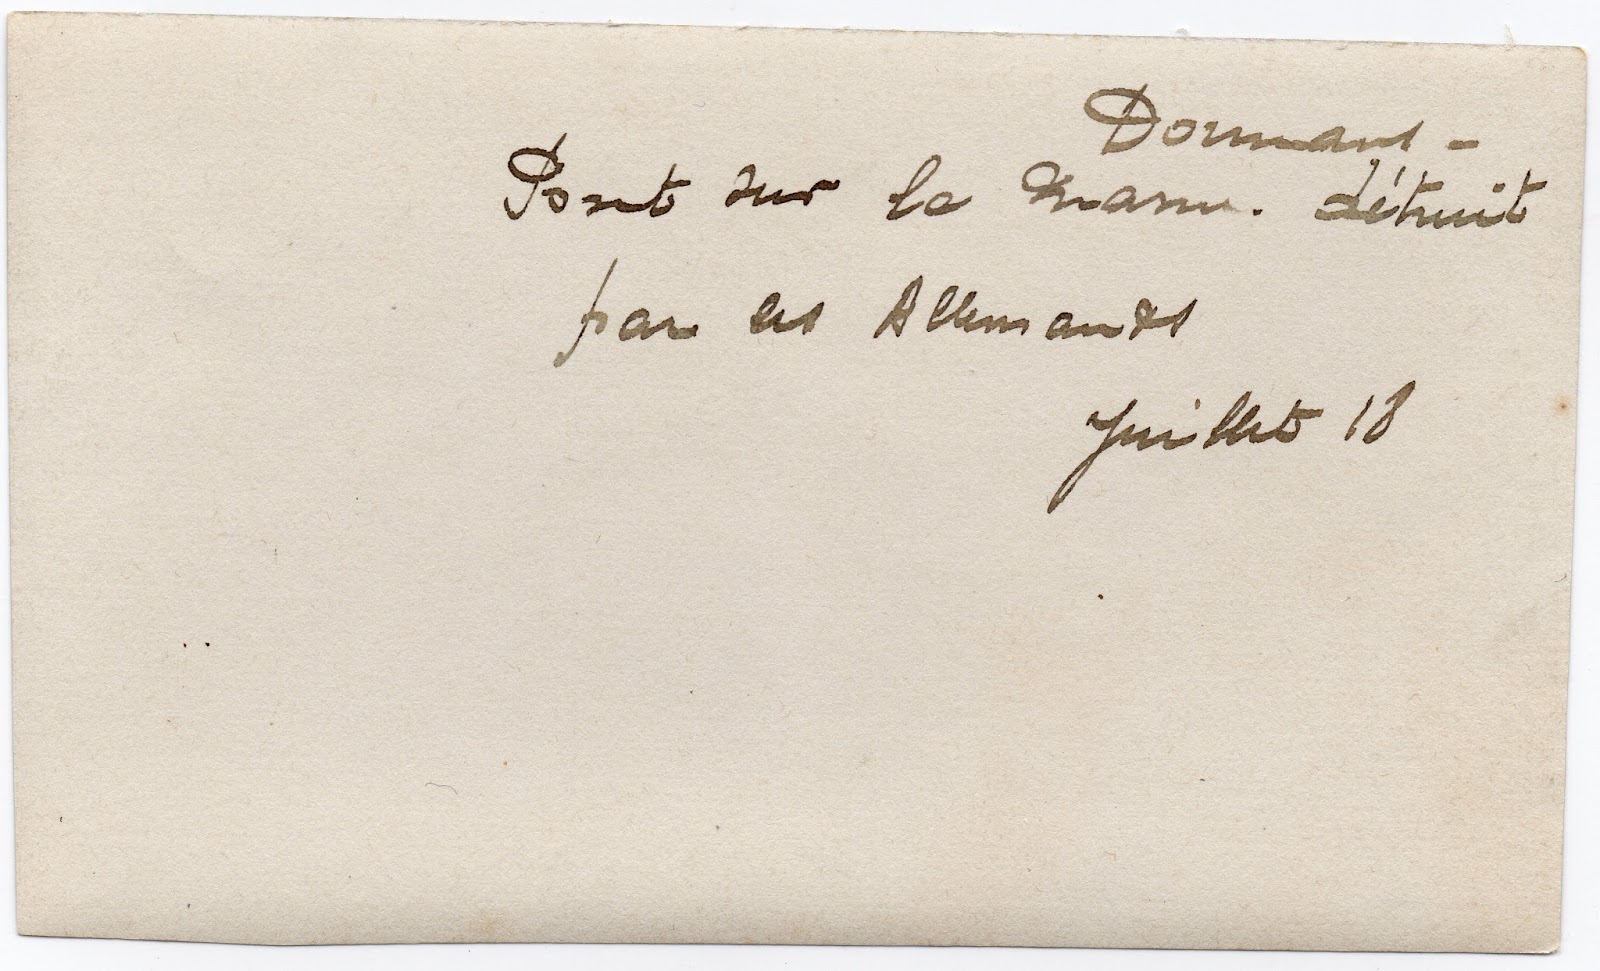 Dormans -
Pont sur la Marne. détruit
par les Allemands
Juillet 18